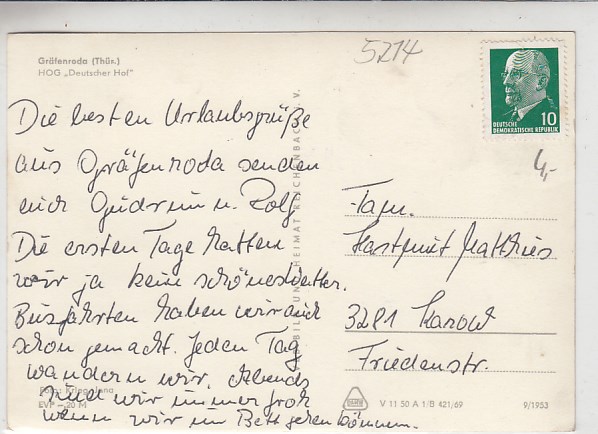 Gräfenroda (Thür.)
HOG „Deutscher Hof"
5214
DEUTSCHE
DEMOKRATISCHE REPUBLIK
10
4,-
Die besten Urlaubsgrüße
aus Gräfenroda senden
euch Gudrun u. Rolf
Die ersten Tage hatten
wir ja kein schönes Wetter.
Busfahrten haben wir auch
schon gemacht. Jeden Tag
wandern wir. Abends
sind wir immer froh
wenn wir im Bett gehen können.
Fam.
Hartmut Matthies
3281 Karow
Friedenstr.
BILD UND HEIMAT REICHENBACH I. V.
Foto: Krieg, Jena
EVP –,20 M
V 11 50 A 1/B 421/69
9/1953